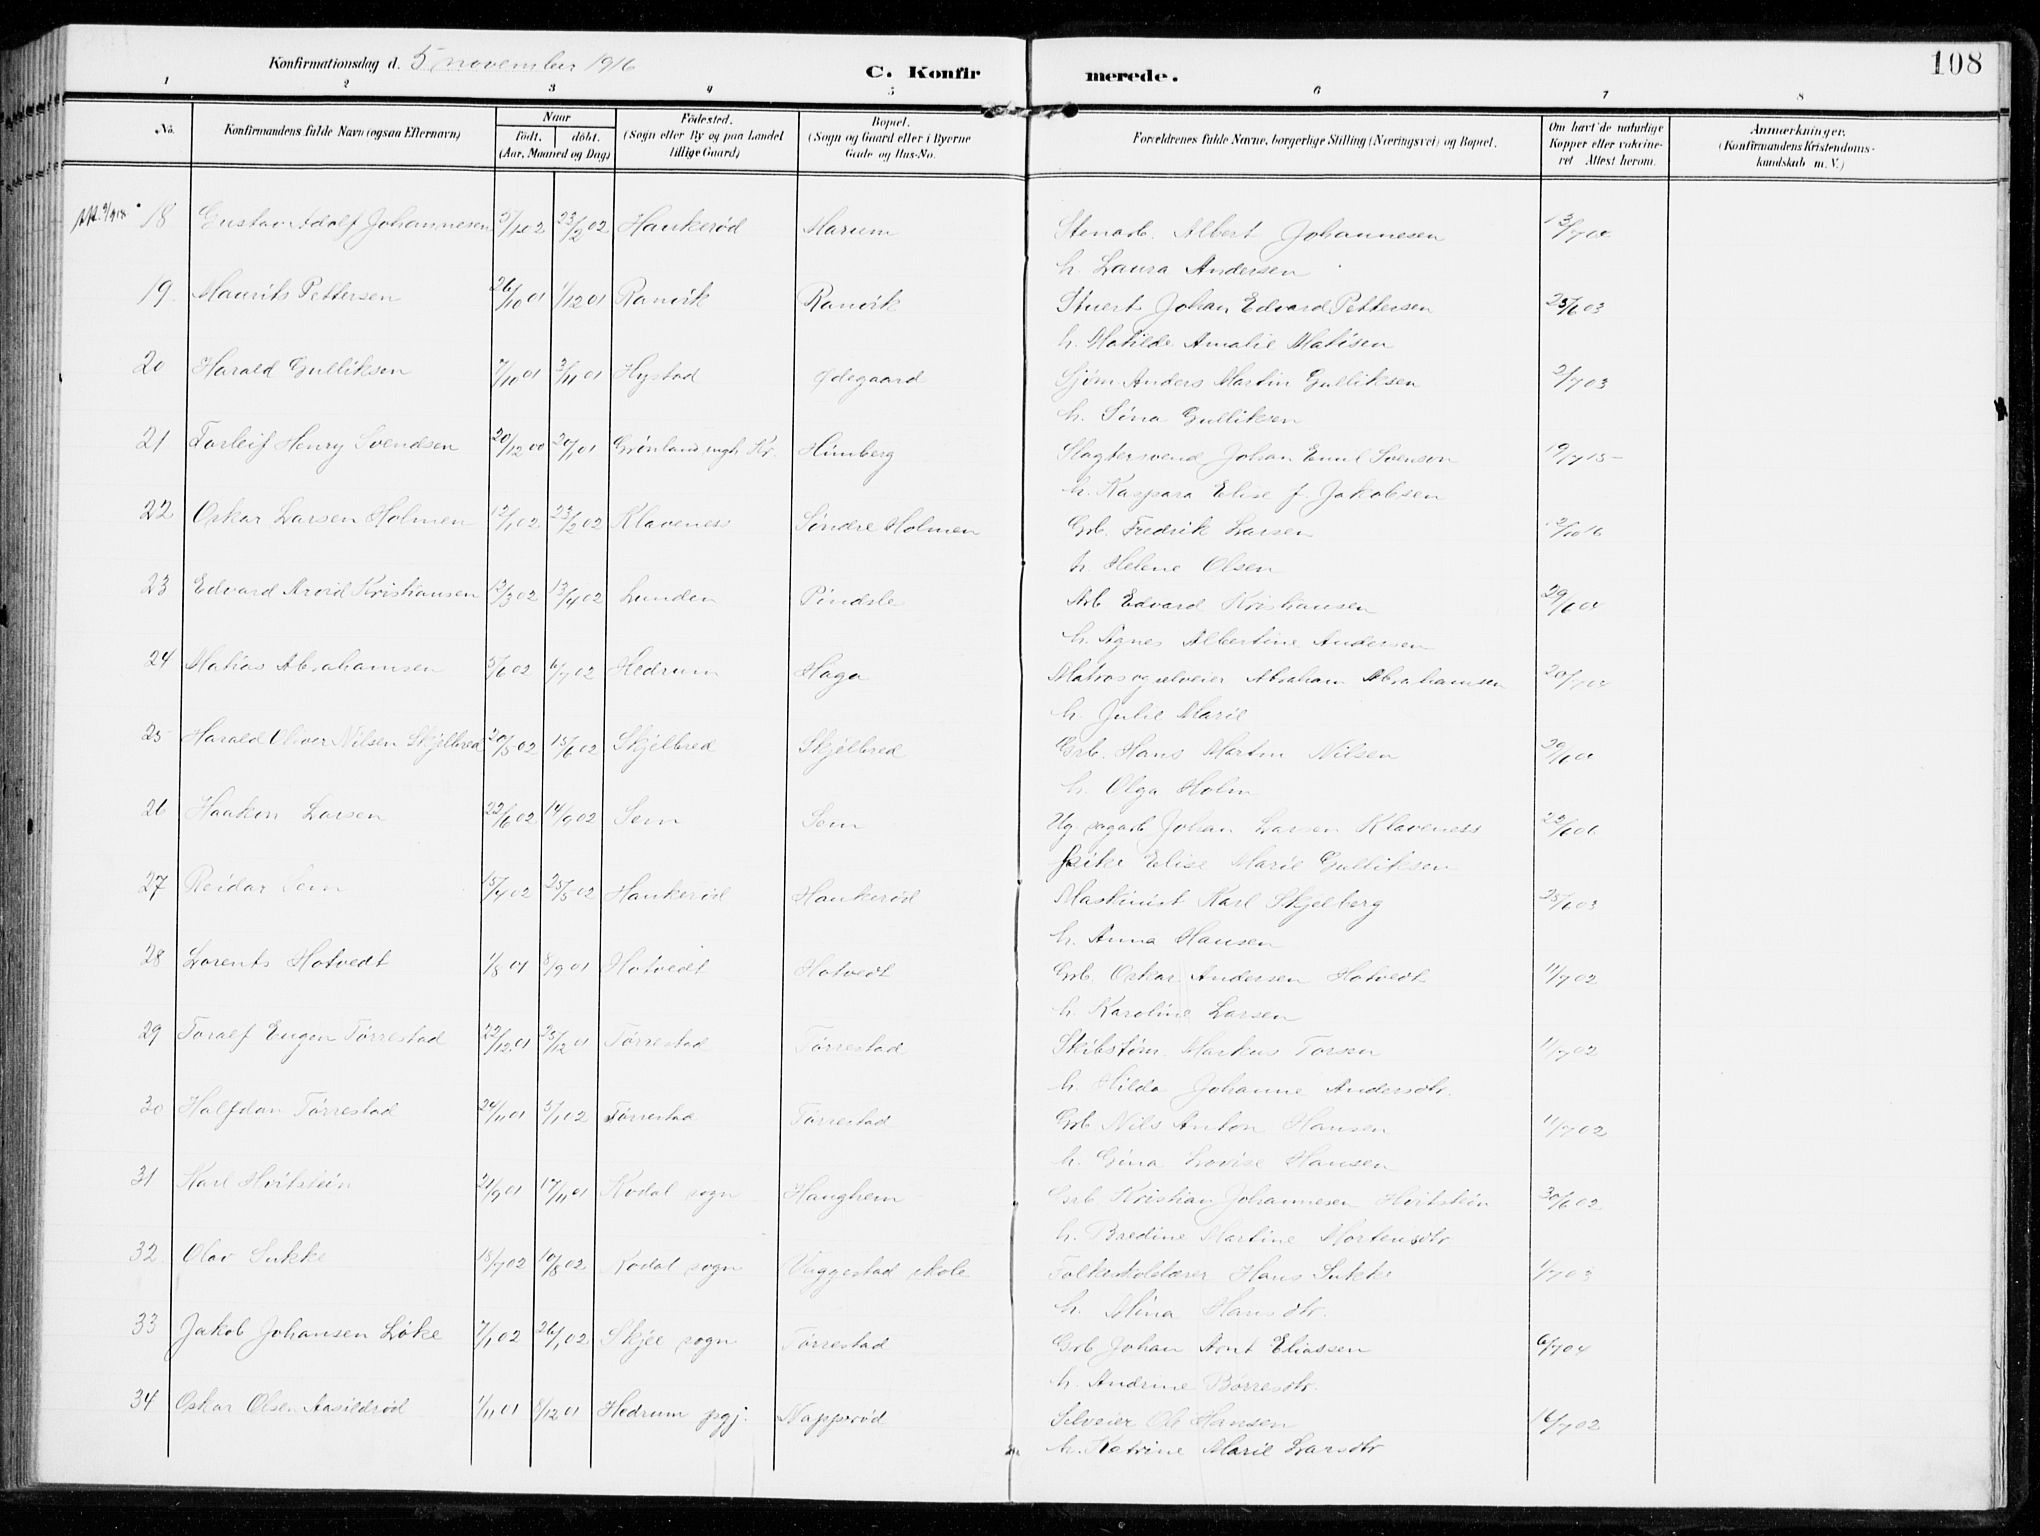 108
Konfirmationsdag d. 5 november 1916
C. Konfirmerede.
1 2 3 4 5 6 7 8
No.
Konfirmandens fulde Navn (ogsaa Efternavn)
Naar
født. døbt.
(Aar, Maaned og Dag)
Fødested.
(Sogn eller By og paa Landet
tillige Gaard)
Bopæl.
(Sogn og Gaard eller i Byerne
Gade og Hus-No.
Forældrenes fulde Navne, borgerlige Stilling (Næringsvei) og Bopæl.
Om havt de naturlige
Kopper eller vakcine-
ret Attest herom.
Anmærkninger.
(Konfirmandens Kristendoms-
kundskab m. V.)
18 Gustav Adolf Johannesen 5/1 02 23/2 02 Haukerød Marum Stenarb. Albert Johannesen
h. Laura Andersen
19. Maurits Pettersen 26/10 01 1/12 01 Ranvik Ranvik Stuert Johan Edvard Pettersen 25/6 03
h. Matilde Amalie Matisen
20 Harald Gulliksen 7/10 01 3/11 01 Hystad Ødegaard Sjøm. Anders Martin Gulliksen 2/7 03
h. Sina Gulliksen
21 Torleif Henry Svendsen 20/12 00 20/1 01 Grønland mgh. Kr. Himberg Slagtersvend Johan Emil Svensen 19/7 15
h. Kaspara Elise f. Jakobsen
22 Oskar Larsen Holmen 12/1 02 23/2 02 Klavenes Søndre Holmen Grb. Fredrik Larsen 12/10 16
h. Helene Olsen
23 Edvard Arvid Kristiansen 12/3 02 13/4 02 Lunden Pindsle Arb. Edvard Kristiansen
h. Agnes Albertine Andersen
24 Matias Abrahamsen 5/6 02 6/7 02 Hedrum Haga Matros og selveier Abraham Abrahamsen
h. Julie Marie
25 Harald Oliver Nilsen Skjelbred 20/5 02 15/6 02 Skjelbred Skjelbred Grb. Hans Martin Nilsen
h. Olga Holm
26 Haakon Larsen 22/6 02 14/9 02 Sem Sem Ug. sagarb. Johan Larsen Klaveness
pike Elise Marie Gulliksen
27 Reidar Sem 15/4 02 25/5 02 Haukerød Haukerød Maskinist Karl Skjelberg 25/6 03
h. Anna Hansen
28 Lorents Hotvedt 1/8 01 8/9 01 Hotvedt Hotvedt Grb. Oskar Andersen Hotvedt 11/7 02
h. Karoline Larsen
29 Toralf Eugen Tørrestad 22/12 01 25/12 01 Tørrestad Tørrestad Skibstøm. Markus Torsen 11/7 02
h. Hilda Johanne Andersdtr.
30 Halfdan Tørrestad 24/11 01 5/1 02 Tørrestad Tørrestad Grb. Nils Anton Hansen 11/7 02
h. Gina Lovise Hansen
31 Karl Hvitstein 21/9 01 17/11 01 Kodal sogn Haughem Grb. Kristian Johannesen Hvitstein 30/6 02
h. Bredine Martine Mortensdtr
32 Olav Sukke 18/7 02 10/8 02 Kodal sogn Vaggestad skole Folkeskolelærer Hans Sukke 1/7 03
h. Mina Hansdtr.
33 Jakob Johansen Løke 7/1 02 26/1 02 Skjee sogn Tørrestad Grb. Johan Arnt Eliassen 6/7 04
h. Andrine Børresdtr.
34 Oskar Olsen Aasildrød 1/11 01 8/12 01 Hedrum pgj. Napperød Selveier Ole Hansen 16/7 02
h. Katrine Marie Larsdtr